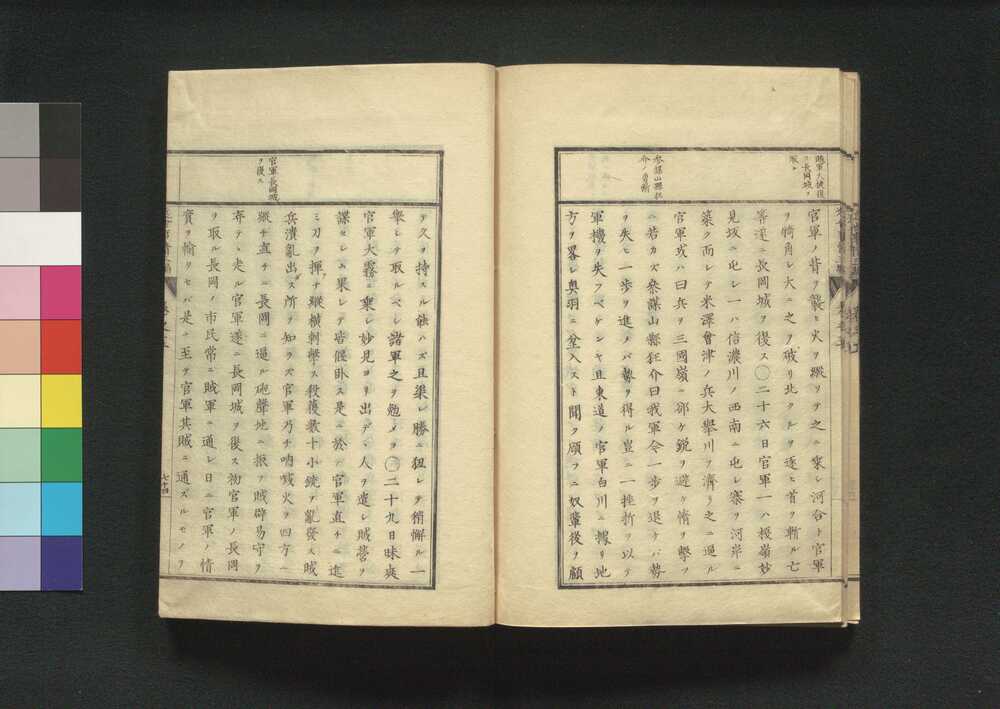 賊軍大挺復
長岡城ヲ
官軍ノ背ヲ襲ヒ火ヲ縱ツテ之ニ乘レ河合ト官軍
ヲ犄角レ大ニ之ヲ破リ北クルヲ逐ヒ首ヲ斬ル亡
筭遂ニ長岡城ヲ復ス〇二十六日官軍一ハ榎嶺妙
見坂ニ屯レ一ハ信濃川ノ西南ニ屯レ寨ヲ河岸ニ
築ク而レテ米澤會津ノ兵大擧川ヲ濟リ之ニ逼ル
官軍或ハ曰兵ヲ三國嶺ニ郤ケ鋭ヲ避ケ惰ヲ擊ツ
參謀山縣狂
介ノ勇斷
ニ若カズ參謀山縣狂介曰我軍今一歩ヲ退ケバ勢
ヲ失ヒ一歩ヲ進メバ勢ヲ得ル豈ニ一挫折ヲ以テ
軍機ヲ失フベケンヤ且東道ノ官軍白川ニ據リ地
方ヲ畧レ奥羽ニ坌入スト聞ク願フニ奴輩後ヲ顧
テ久ヲ持スル能ハズ且渠レ勝ニ狃レテ稍懈ル一
擧レテ取ルベレ諸軍之ヲ勉メヨ〇二十九日昧爽
官軍大霧ニ乘レ妙見ヨリ出デ、人ヲ遣レ賊營ヲ
諜セレム果レテ皆偃臥ス是ニ於テ官軍直チニ進
ミ刀ヲ揮テ縱横刺擊ス殺獲數十小銃ヲ亂發ス賊
兵潰亂出ス所ヲ知ラズ官軍乃チ吶喊火ヲ四方ニ
官軍長岡城
ヲ復ス
縱チ直チニ長岡ニ逼ル砲聲地ニ振フ賊辟易守ヲ
弃テ、走ル官軍遂ニ長岡城ヲ復ス初官軍ノ長岡
ヲ取ル長岡ノ市民常ニ賊軍ニ通レ日ニ官軍ノ情
實ヲ輸リセバ是ニ至テ官軍其賊ニ通ズルモノヲ
七十四